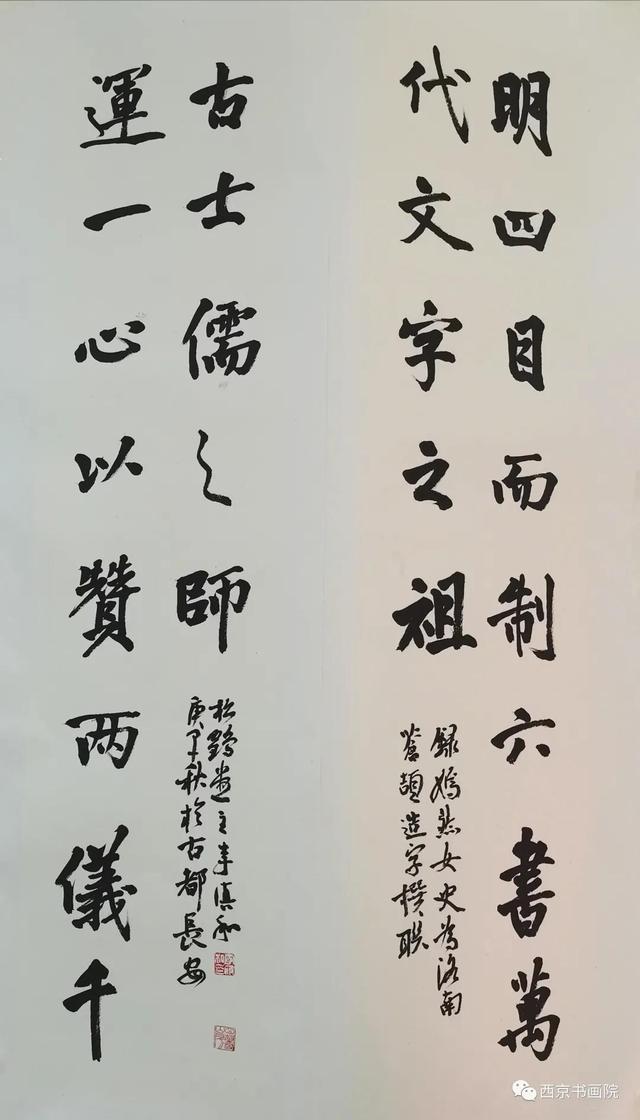 明四目而制六書萬
代文字之祖
録嫣然女史為洛南
蒼頡造字撰联
運一心以贊两儀千
古士儒之師
庚子秋於古都長安
松鶴堂主李和
西京书画院